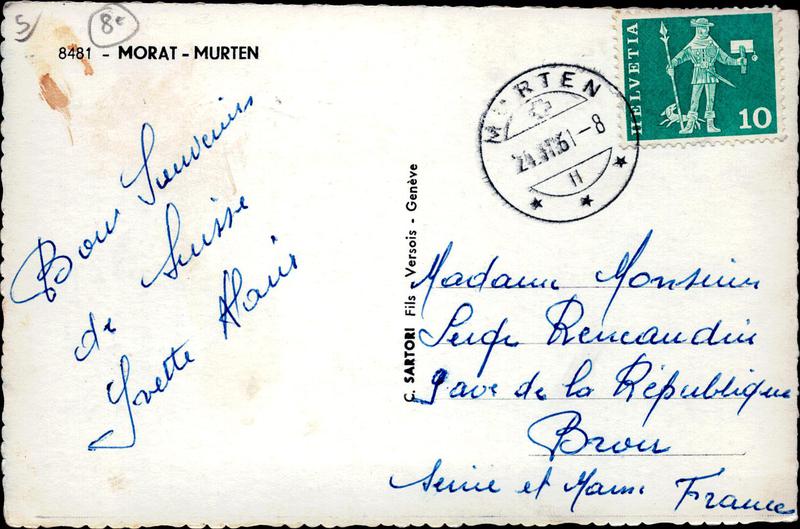 5
8e
8481 - MORAT - MURTEN
Bons Souvenirs
de Suisse
Yvette Alain
C. SARTORI Fils Versois - Genève
MURTEN
61-8
H
HELVETIA
10
Madame Monsieur
Serge
9 ave de la République
Brou
Seine et Marne France